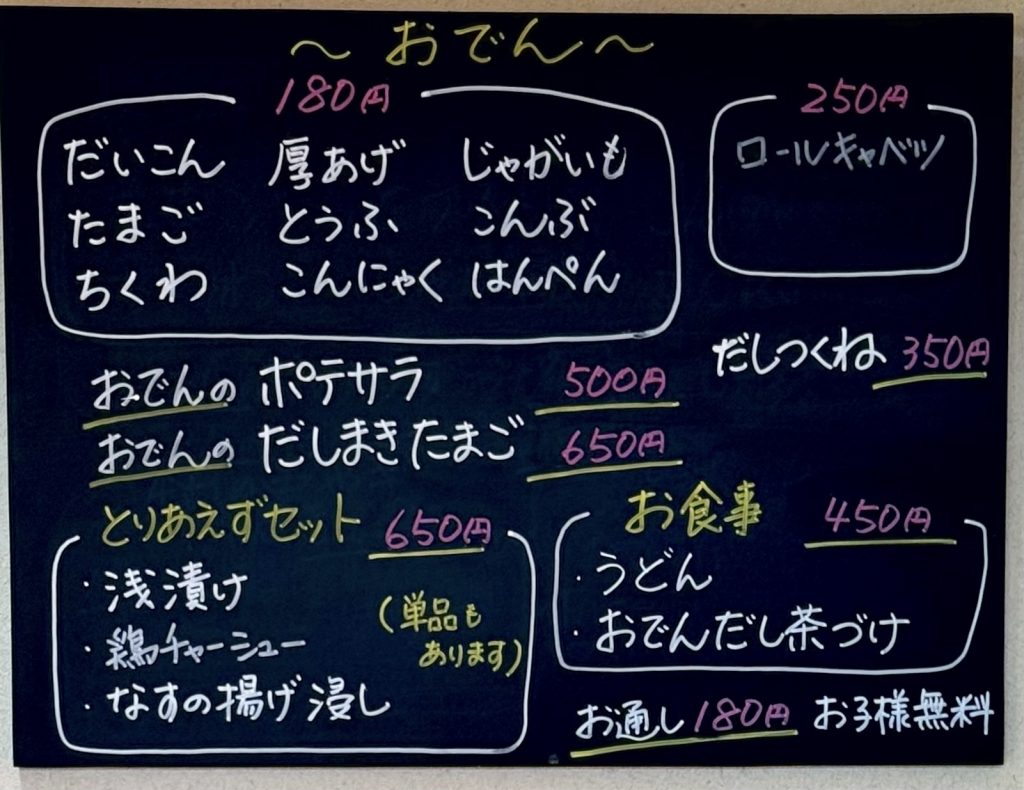 ～おでん～
180円
だいこん 厚あげ じゃがいも
たまご とうふ こんぶ
ちくわ こんにゃく はんぺん
250円
ロールキャベツ
だしつくね 350円
おでんの ポテサラ 500円
おでんの だしまきたまご 650円
とりあえずセット 650円
・浅漬け
・鶏チャーシュー
・なすの揚げ浸し
(単品も
あります)
お食事 450円
・うどん
・おでんだし茶づけ
お通し 180円 お子様無料